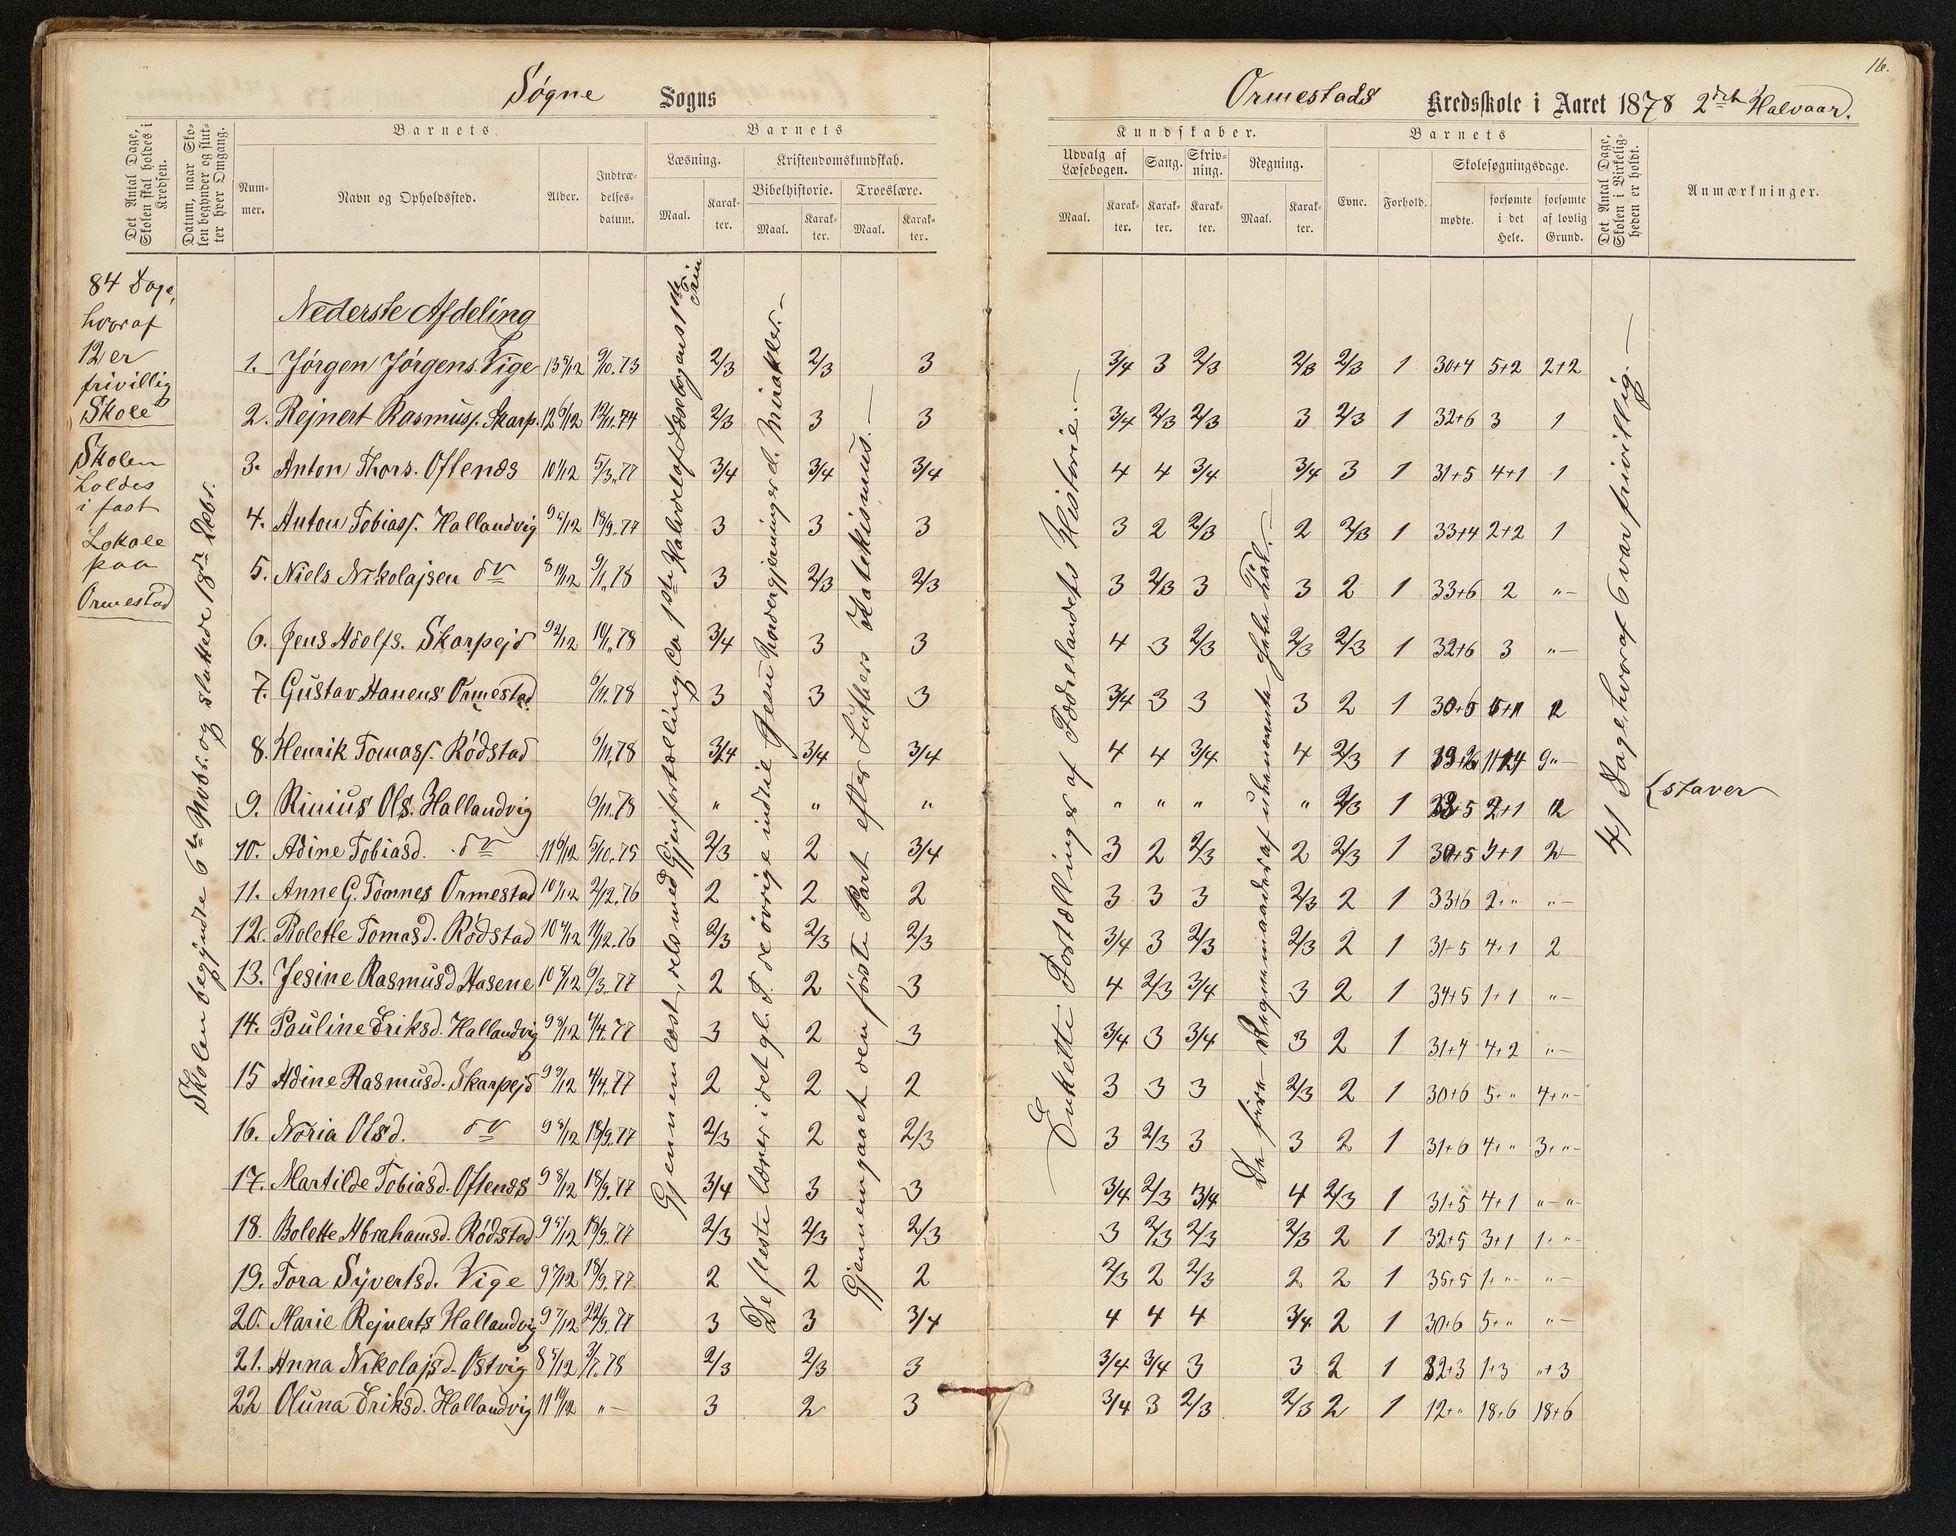 16.
Søgne Sogns
Ormestads Kredsskole i Aaret 1878 2det Halvaar.
Det Antal Dage, Skolen skal holdes i Kredsen.
Datum, naar Skolen begynder og slutter hver Omgang.
Barnets
Nummer.
Navn og Opholdssted.
Alder.
Indtrædelsesdatum.
Barnets
Læsning.
Maal.
Karakter.
Kristendomskundskab.
Bibelhistorie.
Maal.
Karakter.
Troeslære.
Maal.
Karakter.
Kundskaber.
Udvalg af Læsebogen.
Maal.
Karakter.
Sang.
Karakter.
Skrivning.
Karakter.
Regning.
Maal.
Karakter.
Barnets
Evne.
Forhold.
Skolesøgningsdage.
mødte.
forsømte i det Hele.
forsømte af lovlig Grund.
Det Antal Dage, Skolen i Virkeligheden er holdt.
Anmærkninger.
84 Dage,
hvoraf
12 er
frivillig
Skole
Skolen
holdes
i fast
Lokale
paa
Ormestad
Skolen begyndte 6te Novbr. og sluttede 18de Debr.
Gjennemlæst, dels med Gjenfortælling, ca 1ste Halvdel af Læsebogens 1ste Trin
De fleste lærer i det gl. T. de øvrige indtil Jesu Undergjerninger el. Mirakler.
Gjennemgaaet den første Part efter Luthers Katekismus.
Enkelte Fortællinger af Fædrelandets Historie.
De fire Regnemaader af ubenævnte hele Tal.
41 Dage, hvoraf 6 var frivillig.
Nederste Afdeling
1. Jørgen Jørgens. Vige 13 5/12 9/10.73 2/3 2/3 3 3/4 3 2/3 2/3 2/3 1 30+4 5+2 2+2
2. Rejnert Rasmuss. Skarp. 12 6/12 12/11.74 2/3 3 3 3/4 2/3 2/3 3 2/3 1 32+6 3 1
3. Anton Thors. Oftenæs 10 1/12 5/3.77 3/4 3/4 3/4 4 4 3/4 3/4 3 1 31+5 4+1 1
4. Anton Tobiass. Hallandvig 9 5/12 18/9.77 3 3 3 3 2 2/3 2 2/3 1 33+4 2+2 1
5. Niels Nikolajsen do 8 11/12 9/1.78 3 2/3 2/3 3 2/3 3 3 2 1 33+6 2 "-
6. Jens Adolfs. Skarpejd 9 2/12 10/1.78 3/4 3 3 4 3 2/3 2/3 2/3 1 32+6 3 "-
7. Gustav Hanens Ormestad 6/11.78 3 3 3 3/4 3 3 3 2 1 30+5 2
8. Henrik Tomass. Rødstad 6/11.78 3/4 3/4 3/4 4 4 3/4 4 2/3 1 9"-
9. Rinius Ols. Hallandvig 6/11.78 " " " " " " " 2/3 1 2+1 2 staver
10. Adine Tobiasd. do 11 6/12 5/10.75 2/3 2 3/4 3 2 2/3 2 2/3 1 30+5 2-
11. Anne G. Tønnes Ormestad 10 1/12 2/12.76 2 2 2 3 3 3 2/3 2 1 33+6 2+" "-
12. Bolette Tomasd. Rødstad 10 4/12 11/12.76 2/3 2/3 2/3 3/4 3 2/3 2/3 2 1 31+5 4+1 2
13. Jesine Rasmusd Aasene 10 5/12 6/3.77 2 2 3 4 2/3 3/4 3 2 1 34+5 1+1 "-
14. Pauline Eriksd. Hallandvig 9 8/12 4/4.77 3 2 3 3/4 3 3/4 3 2 1 31+4 4+2 "-
15 Adine Rasmusd. Skarpejd 9 9/12 4/4.77 2 2 2 3 3 3 2/3 2 1 30+6 5+" 4+"-
16. Noria Olsd. do 9 5/12 18/9.77 2/3 2 2/3 3 2/3 3 3 2 1 31+6 4+" 3+"-
17. Martilde Tobiasd. Oftenæs 9 8/12 18/9.77 3/4 3 3 3/4 2/3 3/4 4 2/3 1 31+5 4+1 "- "-
18. Bolette Abrahamsd. Rødstad 9 5/12 18/9.77 2/3 2/3 2/3 3 2/3 2/3 2/3 2 1 32+5 3+1 1+"-
19. Tora Syvertsd. Vige 9 7/12 18/9.77 2 2 2 2/3 2 2/3 2 2 1 35+5 1+"- "-
20. Marie Rejnerts Hallandvig 9 7/12 22/9.77 3 3 3/4 4 4 4 3/4 2 1 30+6 5+" "-
21. Anna Nikolajsd. Østvig 8 5/12 3/7.78 2/3 2/3 3 3/4 3/4 3 3 2 1 32+3 1+3 "+3
22 Oluna Eriksd. Hallandvig 11 10/12 "- 3 2 3 3/4 3 2/3 2/3 2 1 12+" 18+6 18+6